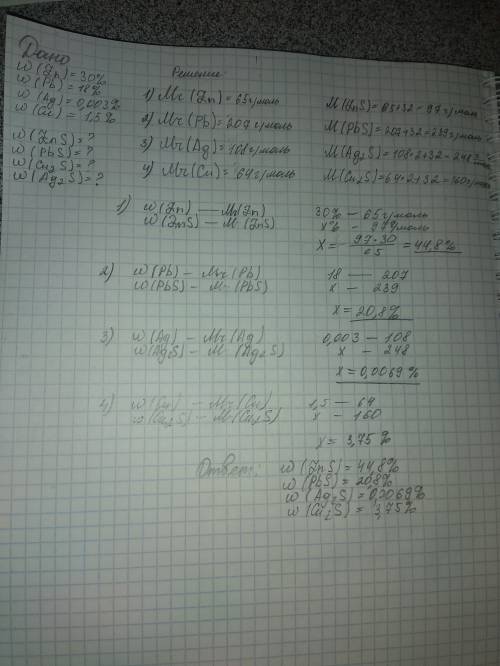 Дано
w (Zn) = 30%
w (Pb) = 18%
w (Ag) = 0,003%
w (Cu) = 1,5%
w (ZnS) = ?
w (PbS) = ?
w (Cu₂S) = ?
w (Ag₂S) = ?
Решение:
1) Mr (Zn) = 65 г/моль
M(ZnS) = 65+32 = 97 г/моль
2) Mr (Pb) = 207 г/моль
M(PbS) = 207+32 = 239 г/моль
3) Mr (Ag) = 108 г/моль
M(Ag₂S) = 108·2+32 = 248
4) Mr (Cu) = 64 г/моль
M(Cu₂S) = 64·2+32 = 160 г/моль
1) w (Zn) — Mr (Zn)
30% — 65 г/моль
w (ZnS) — M (ZnS)
x% — 97 г/моль
X = 97·30 / 65 = 44,8%
2) w (Pb) — Mr (Pb)
18 — 207
w (PbS) — M (PbS)
x — 239
x = 20,8%
3) w (Ag) — Mr (Ag)
0,003 — 108
w (Ag₂S) — M (Ag₂S)
x — 248
x = 0,0069%
4) w (Cu) — Mr (Cu)
1,5 — 64
w (Cu₂S) — M (Cu₂S)
x — 160
x = 3,75%
Ответ: w (ZnS) = 44,8%
w (PbS) = 20,8%
w (Ag₂S) = 0,0069%
w (Cu₂S) = 3,75%